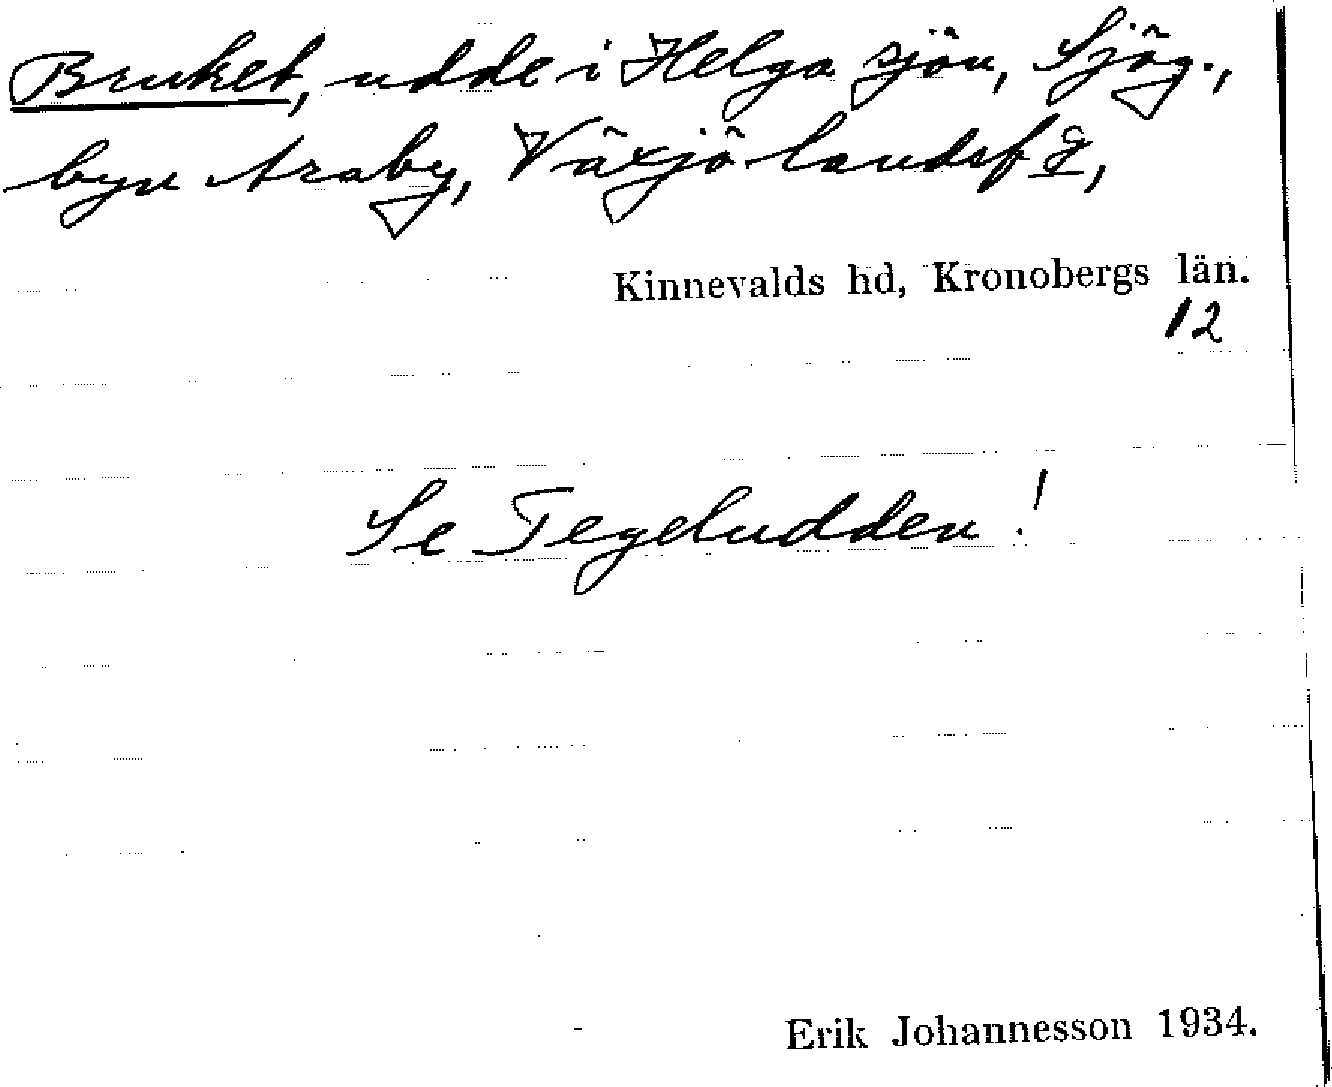 Bruket, udde i Helga sjön, Sjög.,
byn Araby, Växjö landsfg,
Kinnevalds hd, Kronobergs län.
12
Se Tegeludden!
Erik Johannesson 1934.